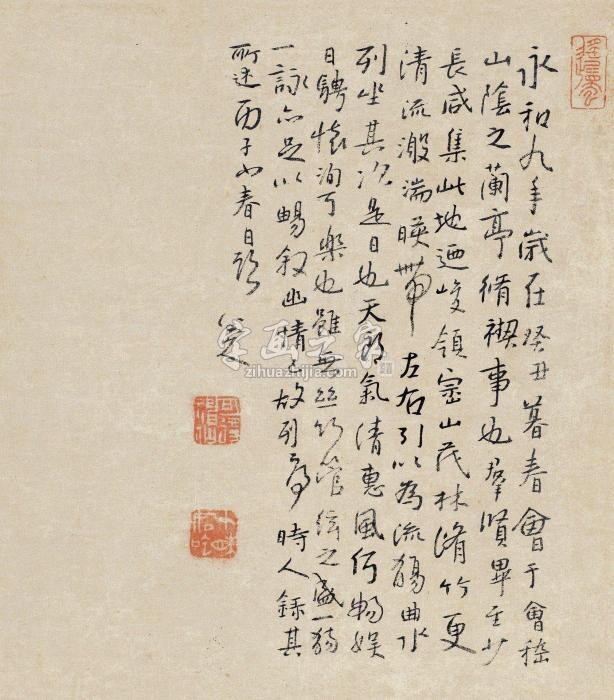 永和九年歲在癸丑暮春會于會稽
山陰之蘭亭脩禊事也羣賢畢至少
長咸集此地迺峻領崇山茂林脩竹更
清流激湍暎帶左右引以為流觴曲水
列坐其次是日也天朗氣清惠風和暢娛
目騁懷洵可樂也雖無絲竹管絃之盛一觴
一詠亦足以暢敘幽情已故列序時人錄其
所述丙子小春日臨
八大山人
字画之家
zihuazhijia.com